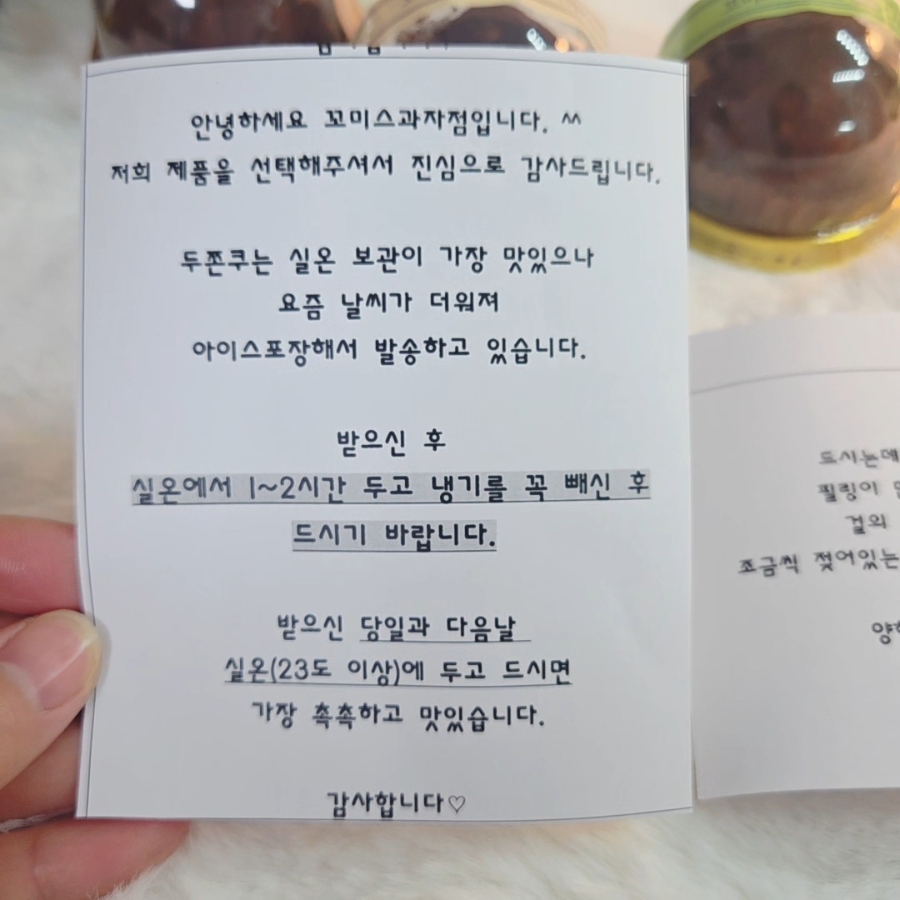 안녕하세요 꼬미스과자점입니다. ^^
저희 제품을 선택해주셔서 진심으로 감사드립니다.
두쫀쿠는 실온 보관이 가장 맛있으나
요즘 날씨가 더워져
아이스포장해서 발송하고 있습니다.
받으신 후
실온에서 1~2시간 두고 냉기를 꼭 빼신 후
드시기 바랍니다.
받으신 당일과 다음날
실온(23도 이상)에 두고 드시면
가장 촉촉하고 맛있습니다.
감사합니다♡
드시는데
필링이
겉의
조금씩 젖어있는